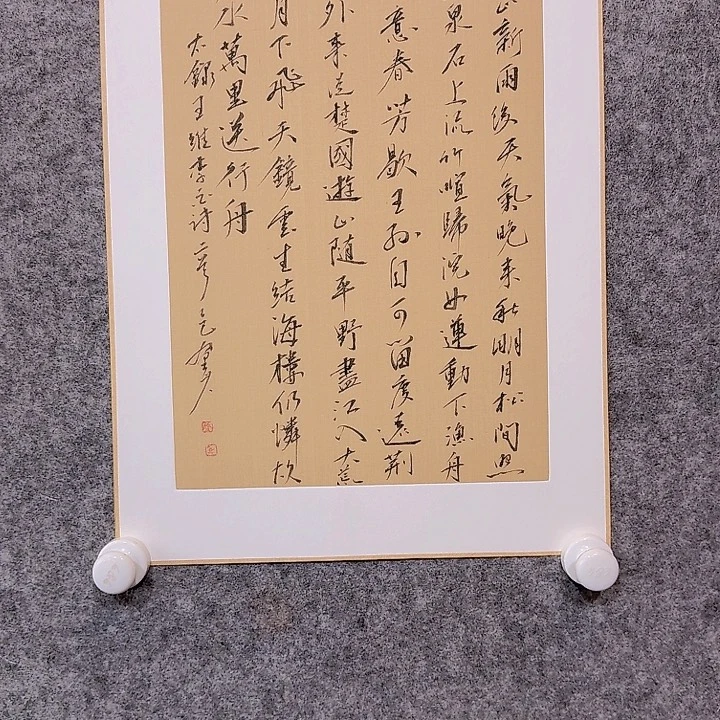 山新雨後天氣晚来秋明月松間照
泉石上流竹喧歸浣女蓮動下漁舟
意春芳歇王孫自可留渡遠荊
外来從楚國遊山随平野盡江入大荒
月下飛天鏡雲生結海樓仍憐故
水萬里送行舟
右錄王維李白詩二首